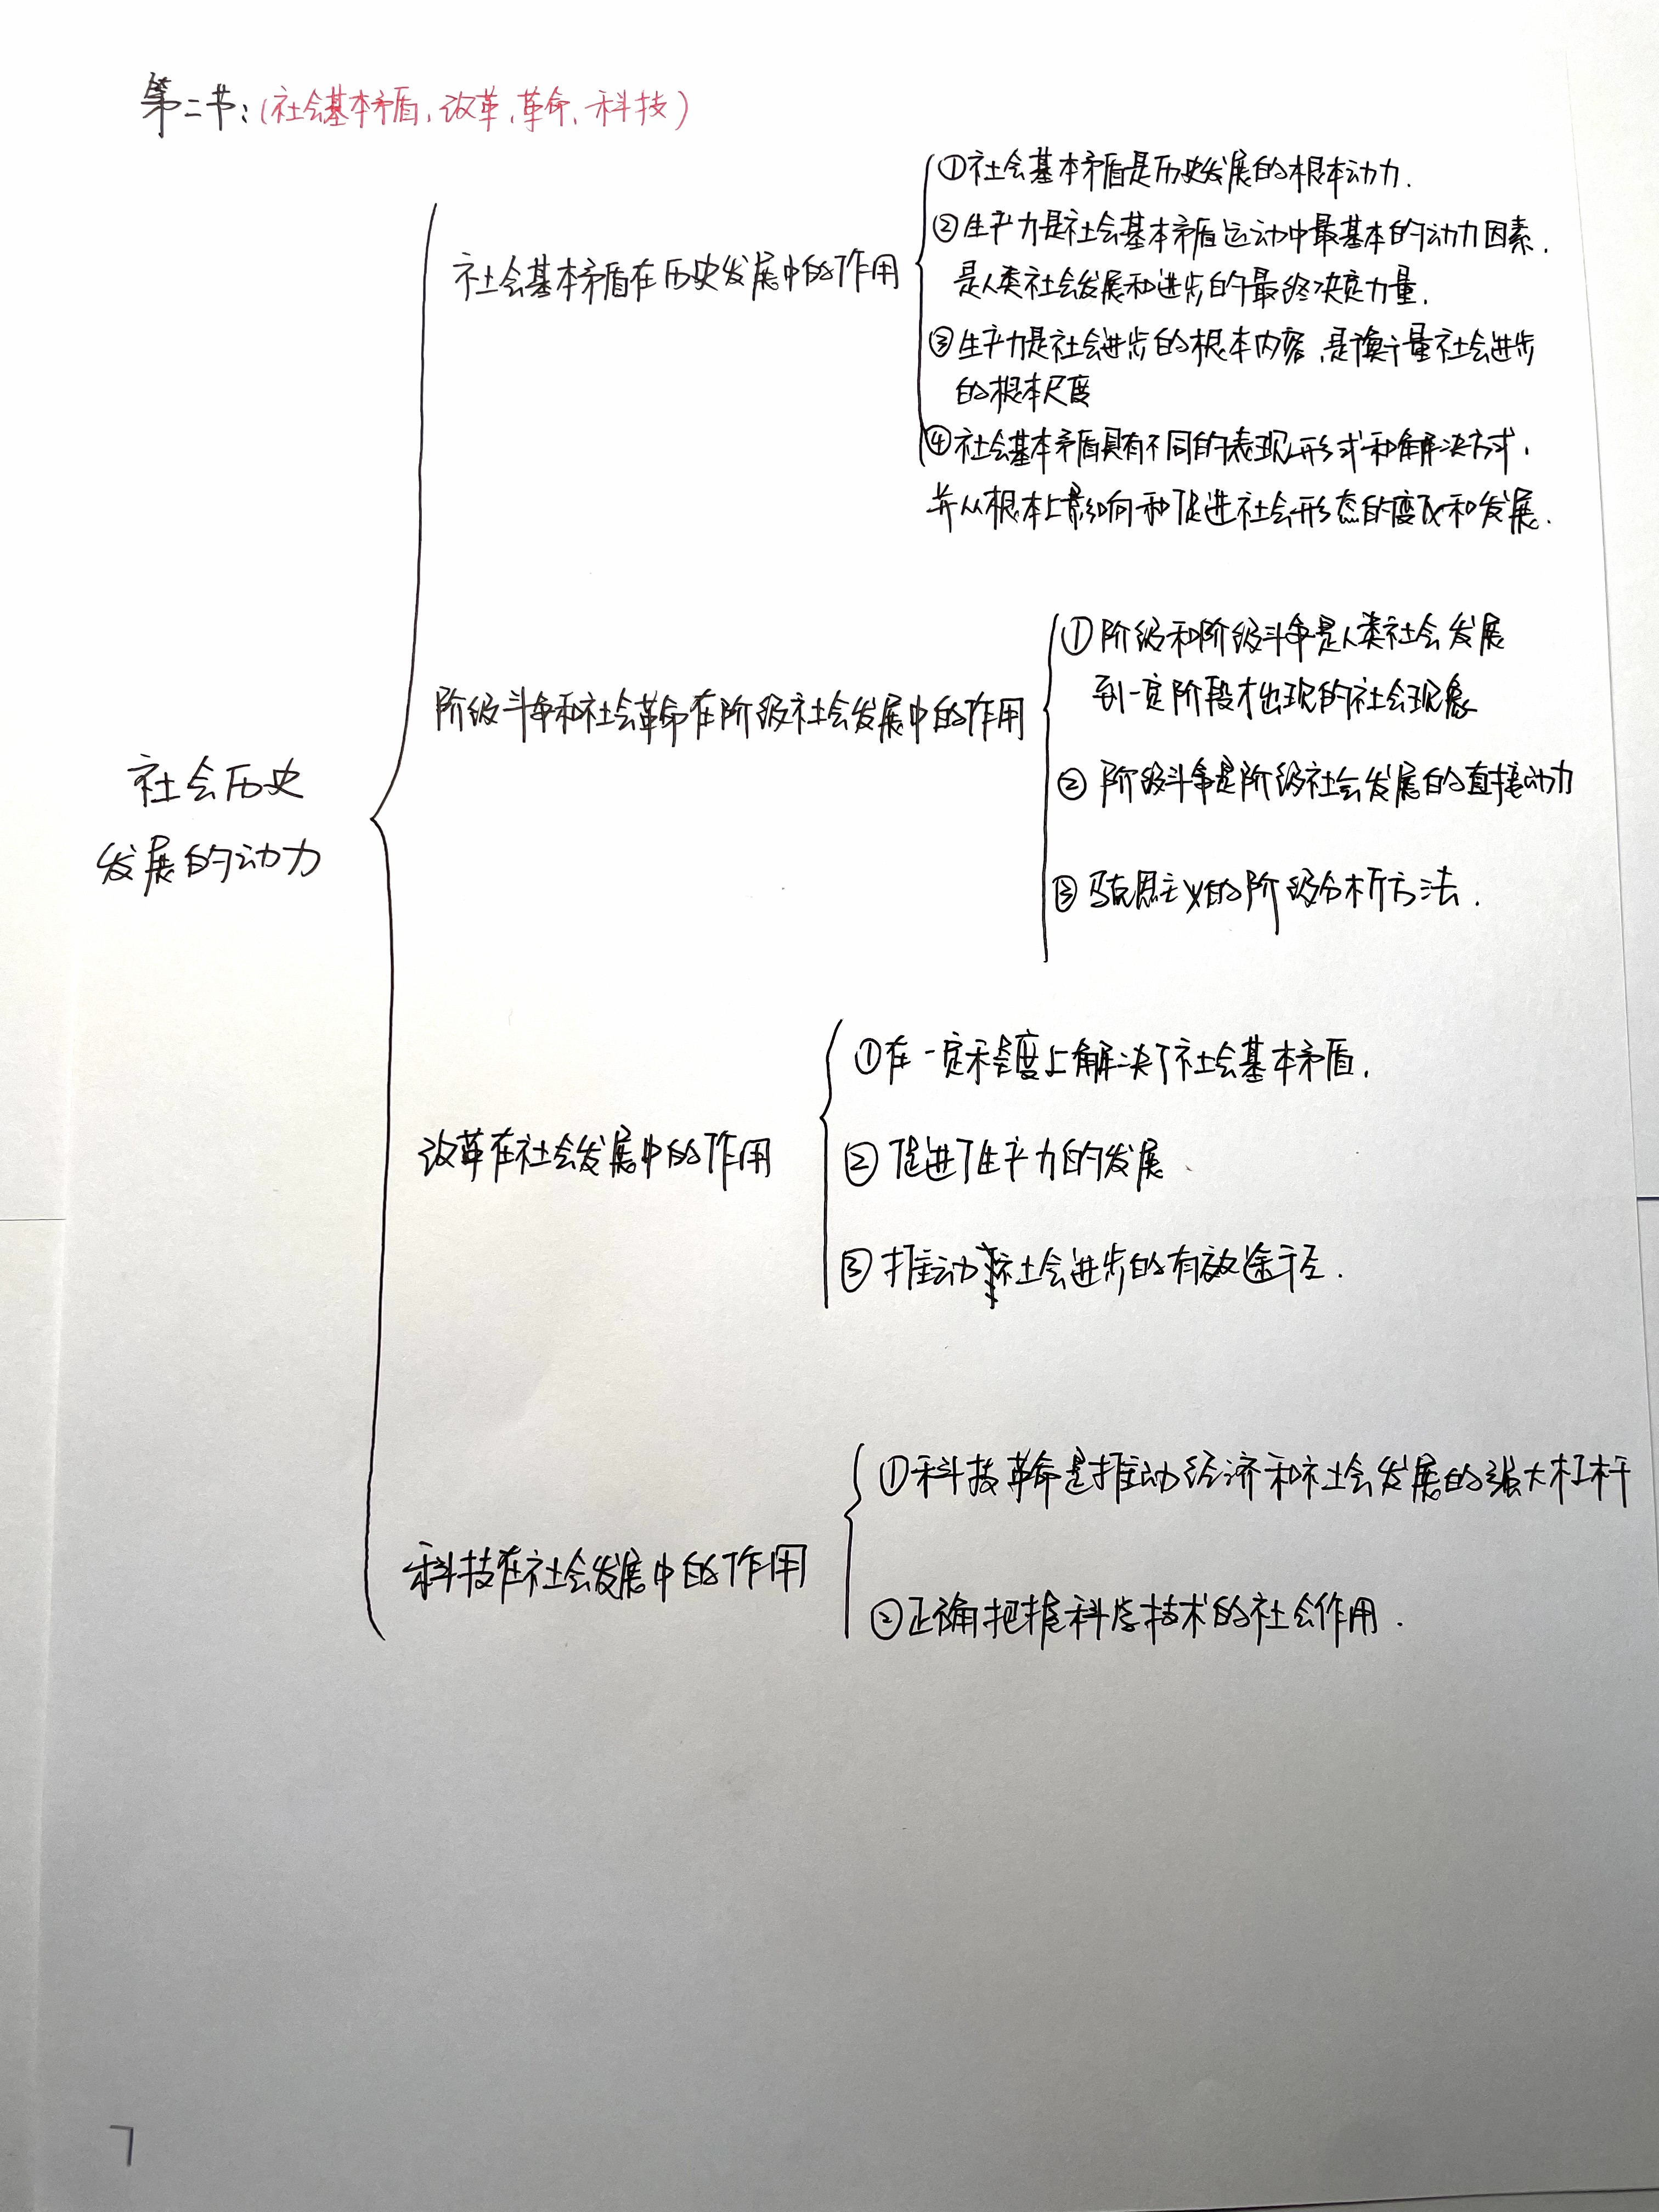 第二节:(社会基本矛盾,改革,革命,科技)
社会历史
发展的动力
社会基本矛盾在历史发展中的作用
①社会基本矛盾是历史发展的根本动力.
②生产力是社会基本矛盾运动中最基本的动力因素.
是人类社会发展和进步的最终决定力量.
③生产力是社会进步的根本内容,是衡量社会进步
的根本尺度
④社会基本矛盾具有不同的表现形式和解决方式,
并从根本上影响和促进社会形态的变化和发展.
阶级斗争和社会革命在阶级社会发展中的作用
①阶级和阶级斗争是人类社会发展
到一定阶段才出现的社会现象
②阶级斗争是阶级社会发展的直接动力
③马克思主义的阶级分析方法.
改革在社会发展中的作用
①在一定程度上解决了社会基本矛盾.
②促进了生产力的发展
③推动社会进步的有效途径.
科技在社会发展中的作用
①科技革命是推动经济和社会发展的强大杠杆
②正确把握科学技术的社会作用.
7